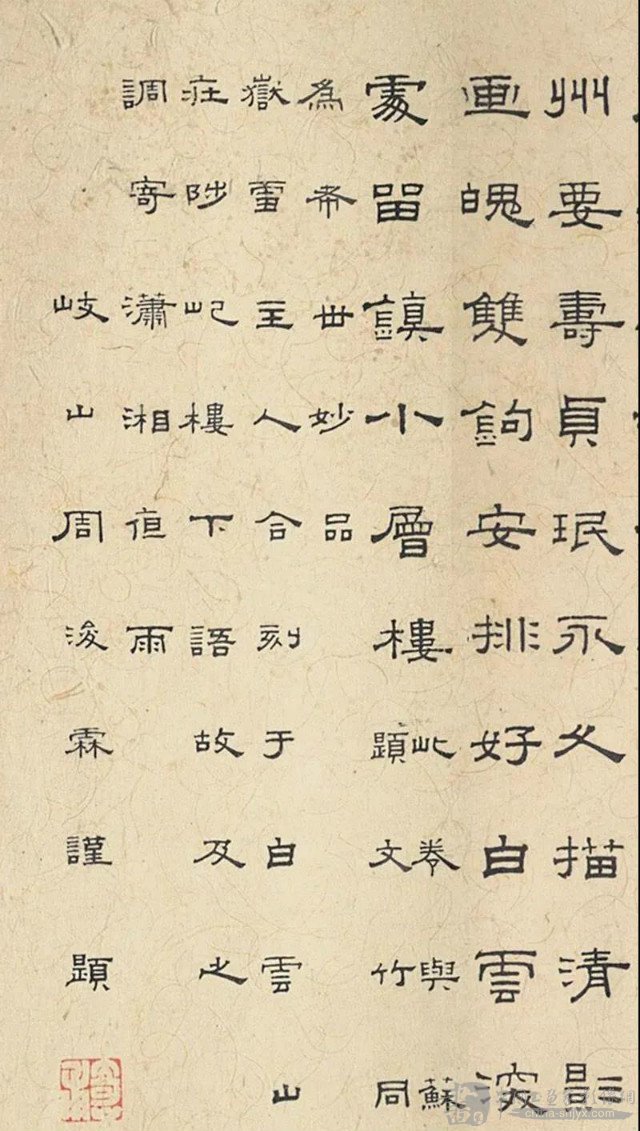 州要壽貞珉永久描清影
画魄雙鉤安排好白雲深
處留鎮小層樓
此卷與蘇
題文竹同
為希世妙品
嶽雪主人合刻于白雲山
莊陟屺樓下語故及之
調寄瀟湘夜雨
岐山周浚霖謹題